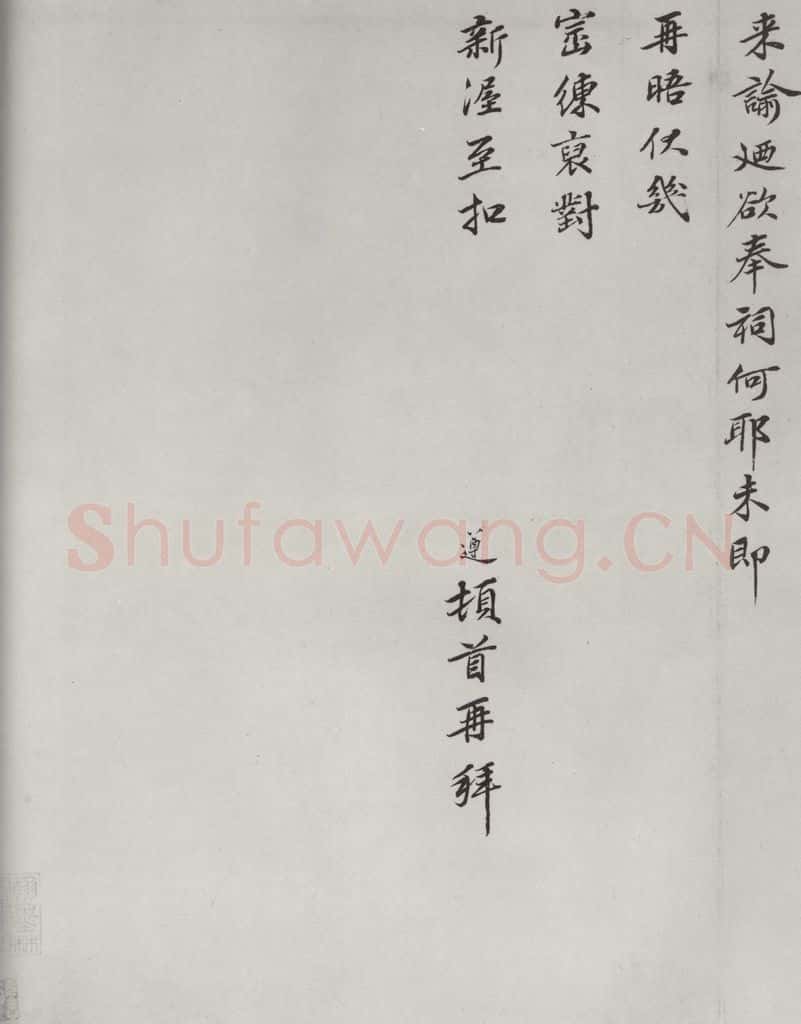 来諭廼欲奉祠何耶未即
再晤伏幾
宻練裒對
新渥至扣
遵頓首再拜
Shufawang.CN